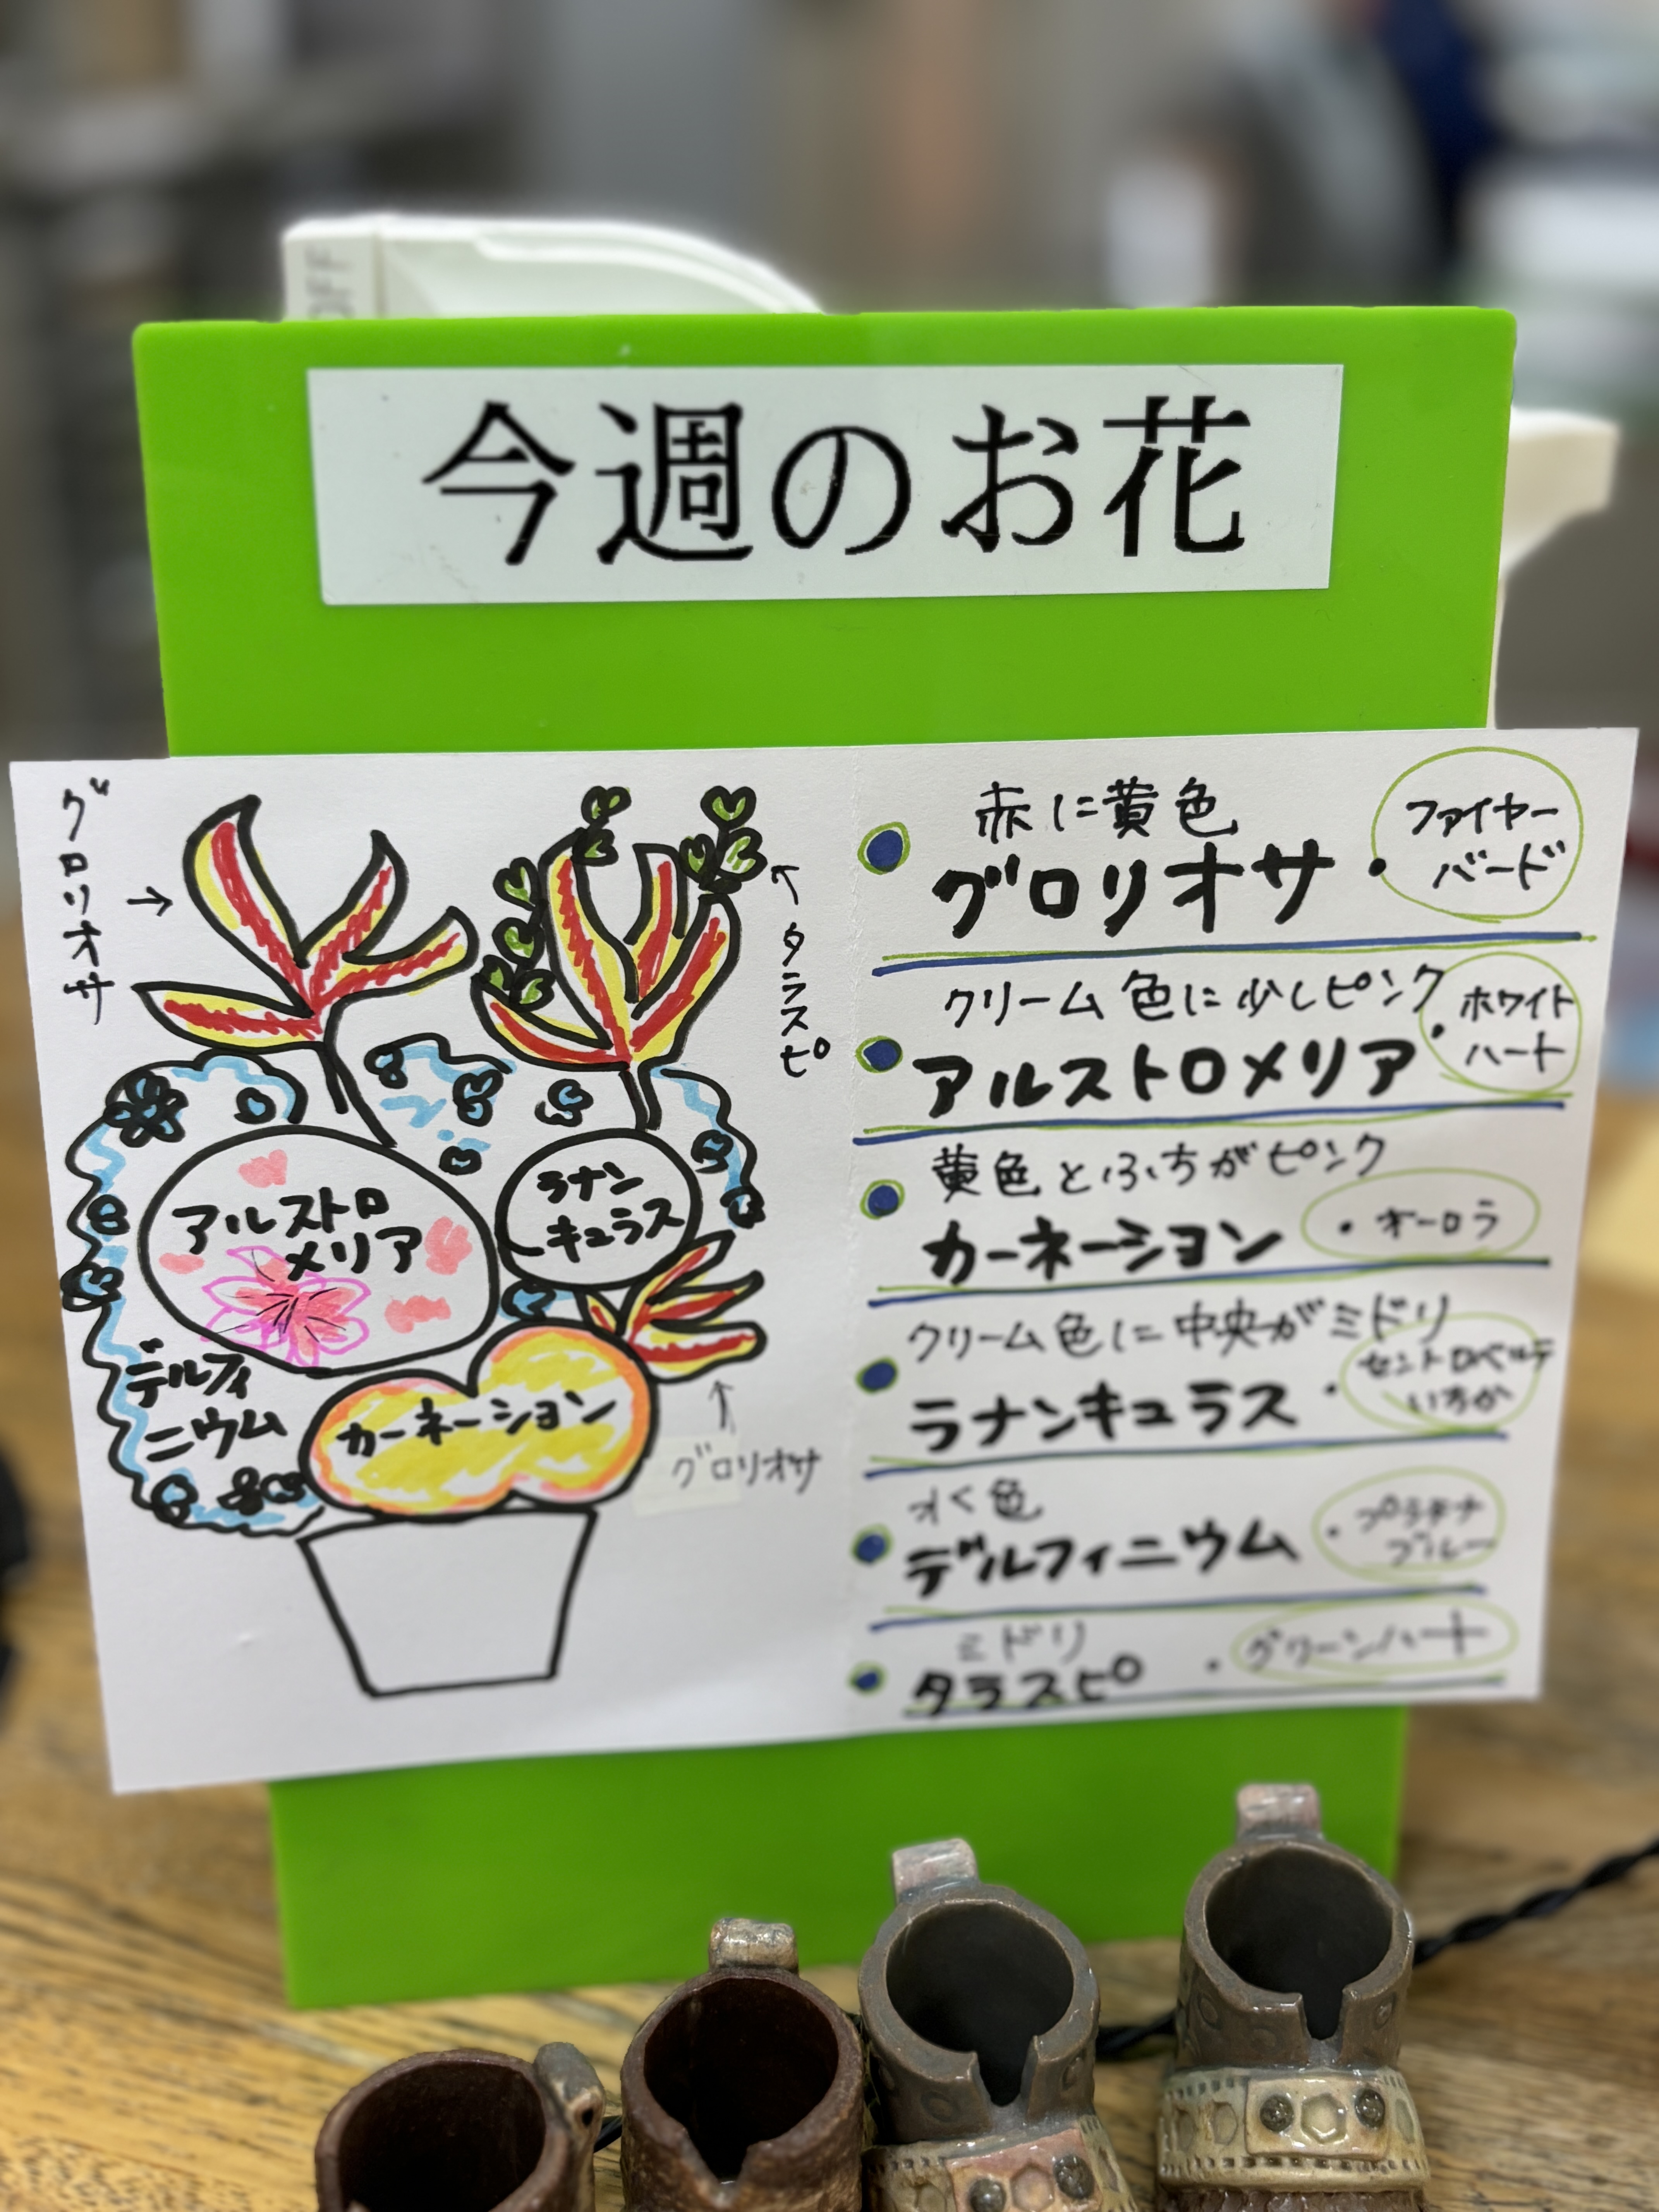 OFF
今週のお花
グロリオサ
タラスピ
アルストロ
メリア
ラナン
キュラス
デルフィ
ニウム
カーネーション
グロリオサ
赤に黄色
グロリオサ・
ファイヤー
バード
クリーム色に少しピンク
アルストロメリア・
ホワイト
ハート
黄色とふちがピンク
カーネーション
・オーロラ
クリーム色に中央がミドリ
ラナンキュラス
・セントロベルデ
いろか
水色
デルフィニウム
・プラチナ
ブルー
ミドリ
タラスピ
・グリーンハート